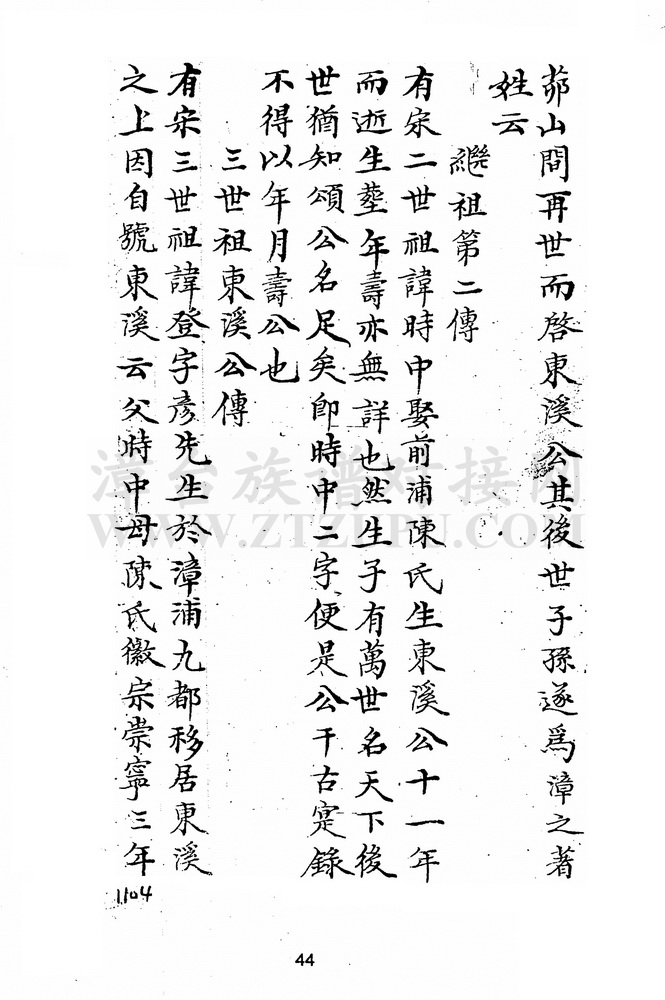 茆山間再世而啓東溪公其後世子孫遂爲漳之著
姓云
繼祖第二傳
有宋二世祖諱時中娶前浦陳氏生東溪公十一年
而逝生塟年壽亦無詳也然生子有萬世名天下後
世猶知頌公名足矣卽時中二字便是公千古寔錄
不得以年月壽公也
三世祖東溪公傳
有宋三世祖諱登字彥先生於漳浦九都移居東溪
之上因自號東溪云父時中母陳氏徽宗崇寧三年
1104
漳台族谱对接网
WWW.ZTZUPU.COM
44